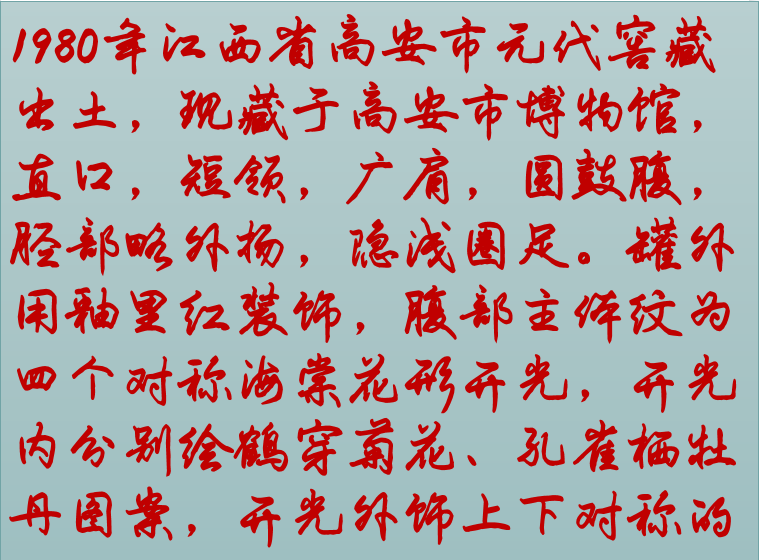 1980年江西省高安市元代窖藏
出土，现藏于高安市博物馆，
直口，短领，广肩，圆鼓腹，
胫部略外扬，隐浅圈足。罐外
用釉里红装饰，腹部主体纹为
四个对称海棠花形开光，开光
内分别绘鹤穿菊花、孔雀栖牡
丹图案，开光外饰上下对称的